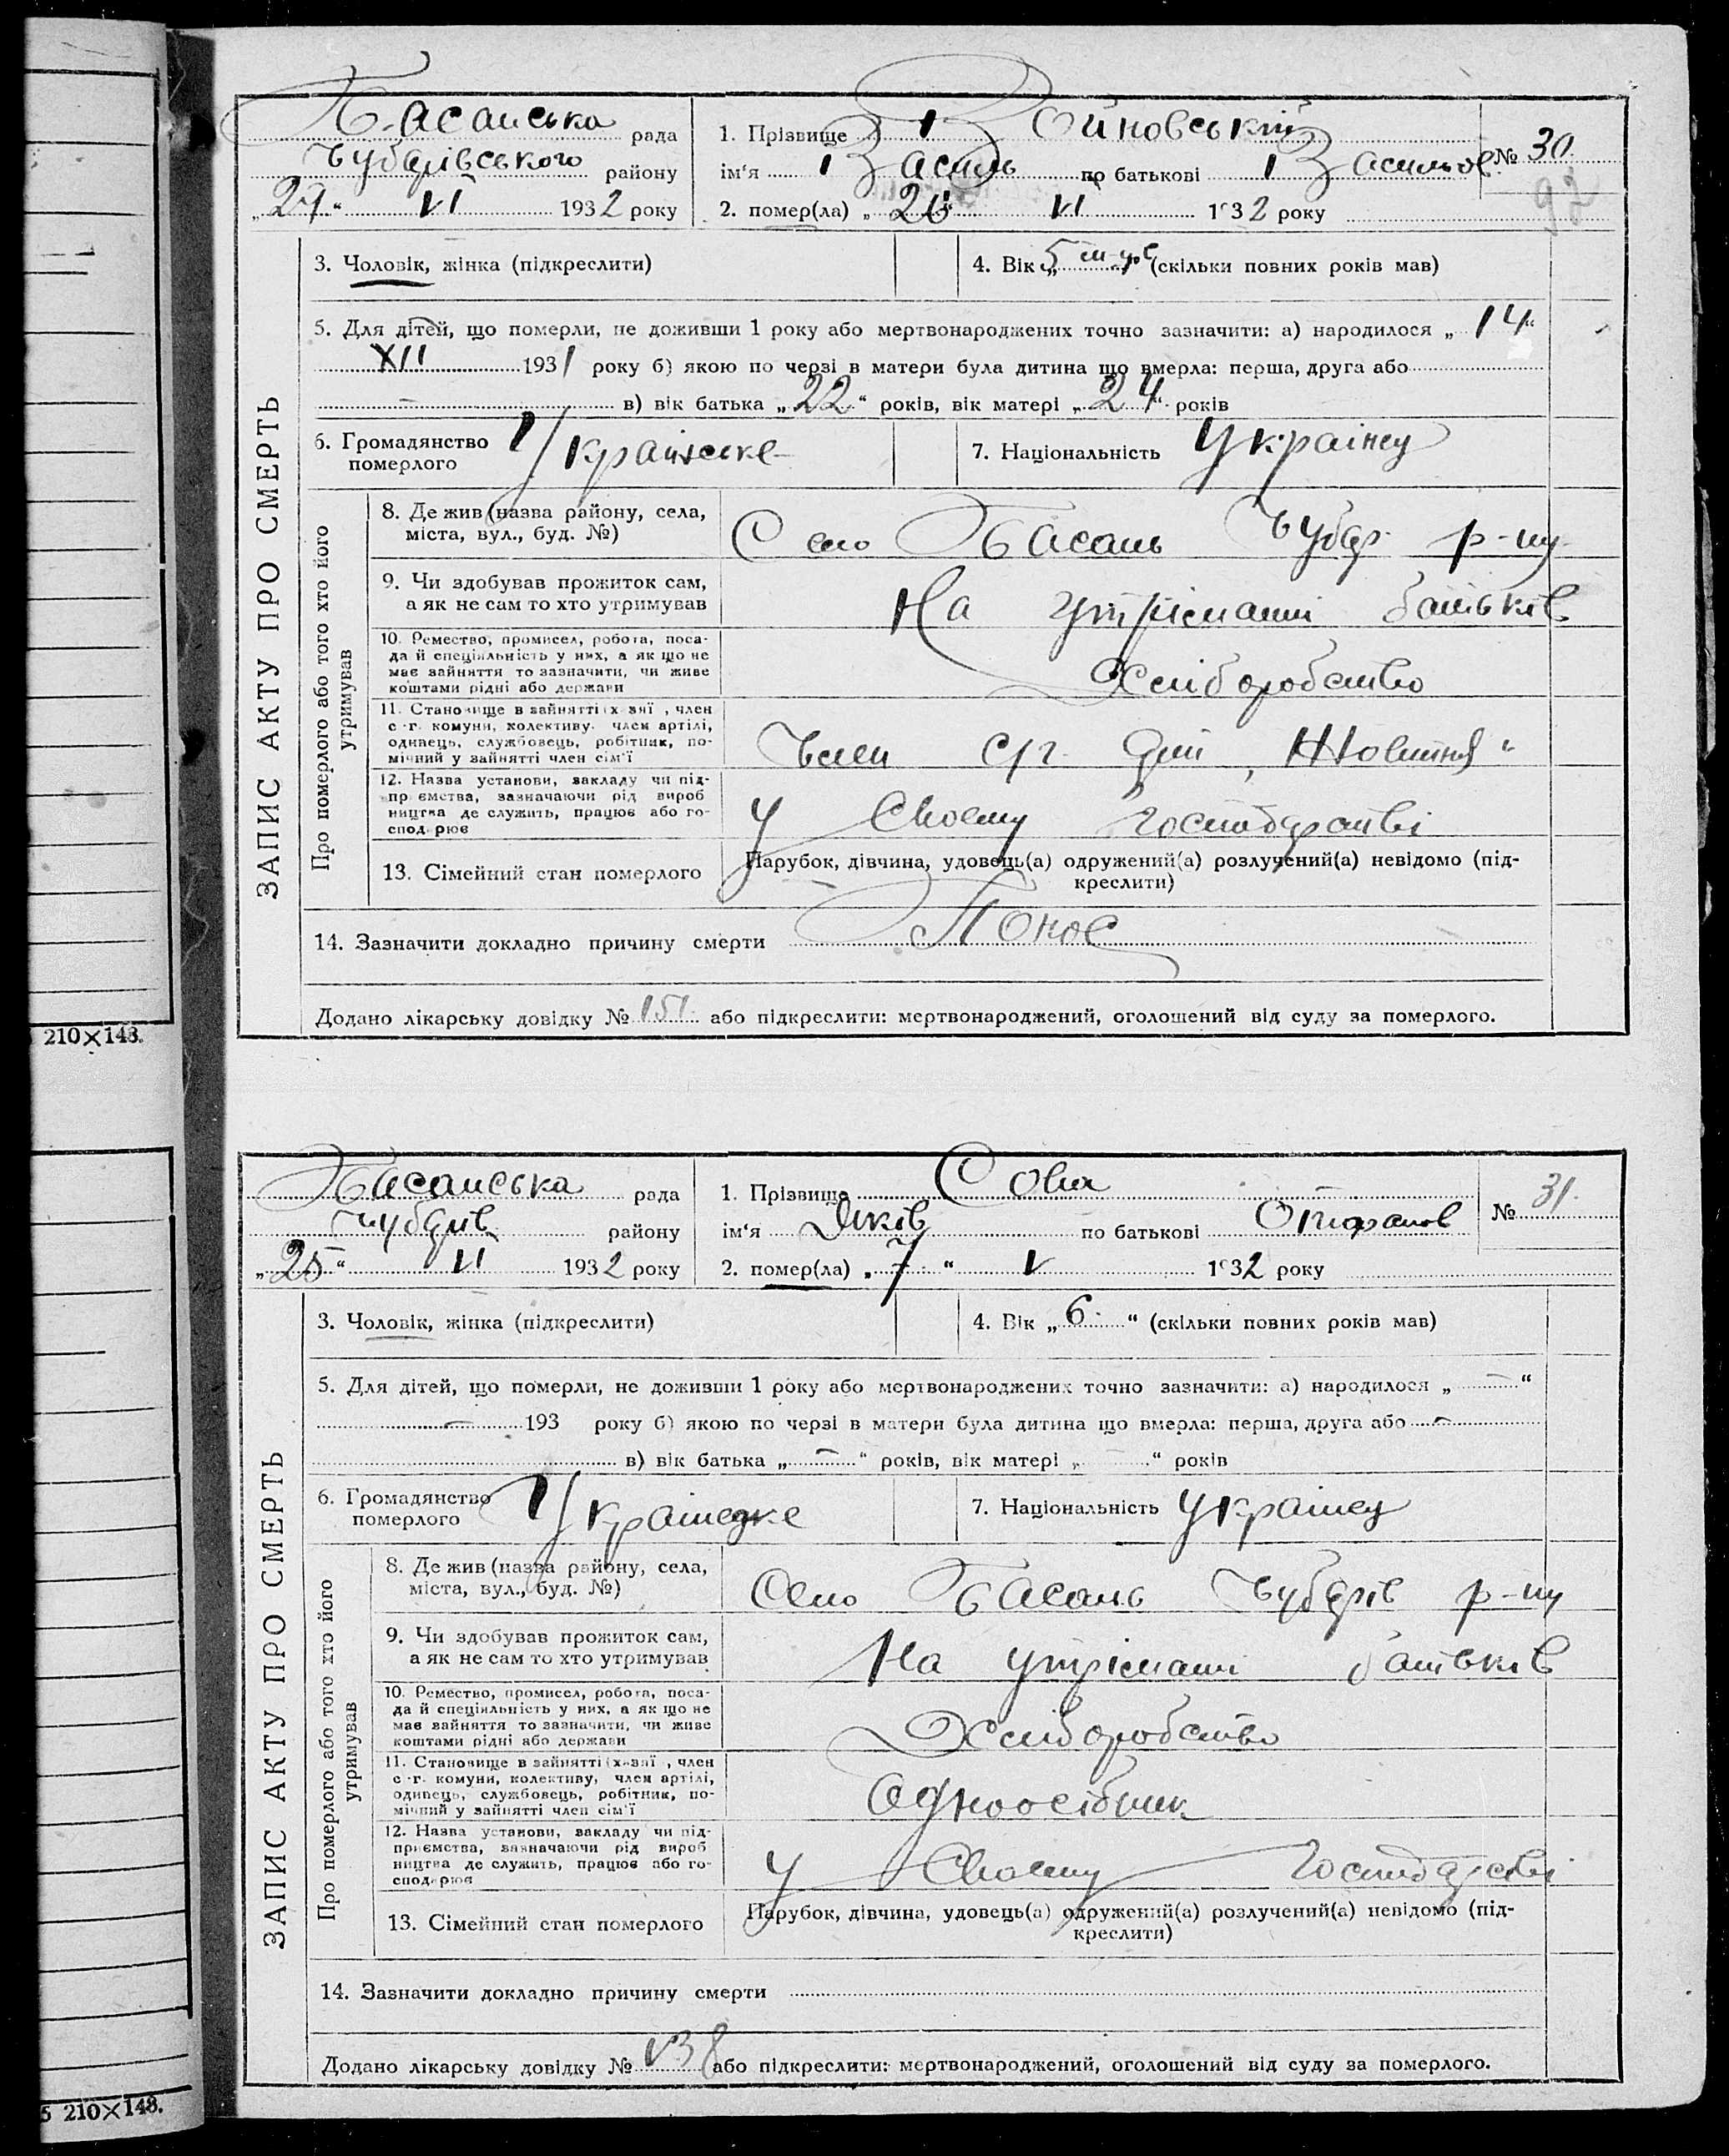 Басанська рада
Чубарівського району
1932 року
1. Прізвище Войновський
ім‘я Василь по батькові Васильов.
2. помер(ла) „ VI 1932 року
№ 30
92
ЗАПИС АКТУ ПРО СМЕРТЬ
3. Чоловік, жінка (підкреслити)
4. Вік „5 (скільки повних років мав)
5. Для дітей, що померли, не доживши 1 року або мертвонароджених точно зазначити: а) народилося „14“
XII 1931 року б) якою по черзі в матери була дитина що вмерла: перша, друга або
— в) вік батька „22“ років, вік матері „24“ років
6. Громадянство померлого Українське
7. Національність Українец
Про померлого або того хто його утримував
8. Де жив (назва району, села,
міста, вул., буд. №)
Село Басань Чубар. р-ну
9. Чи здобував прожиток сам,
а як не сам то хто утримував
На утріманні батьків
10. Ремество, промисел, робота, поса-
да й спеціяльність у них, а як що не
має зайняття то зазначити, чи живе
коштами рідні або держави
Хліборобство
11. Становище в зайнятті , член
с.-г. комуни, колективу, член артілі,
одинець, службовець, робітник, по-
мічний у зайнятті член сім'ї
Член с/г. „
12. Назва установи, закладу чи під-
приємства, зазначаючи рід вироб
ництва де служить, працює або го-
сподарює
У своєму господарстві
13. Сімейний стан померлого
Парубок, дівчина, удовець(а) одружений(а) розлучений(а) невідомо (під-
креслити)
14. Зазначити докладно причину смерти Понос
Додано лікарську довідку № 151 або підкреслити: мертвонароджений, оголошений від суду за померлого.
210×148.
Басанська рада
Чубарів. району
„25“ VI 1932 року
1. Прізвище Сова
ім‘я Яків по батькові
2. помер(ла) „7“ V 1932 року
№ 31.
ЗАПИС АКТУ ПРО СМЕРТЬ
3. Чоловік, жінка (підкреслити)
4. Вік „6“ (скільки повних років мав)
5. Для дітей, що померли, не доживши 1 року або мертвонароджених точно зазначити: а) народилося „—“
— 193 року б) якою по черзі в матери була дитина що вмерла: перша, друга або —
в) вік батька „—“ років, вік матері „ “ років
6. Громадянство померлого Українське
7. Національність Українец
Про померлого або того хто його утримував
8. Де жив (назва району, села,
міста, вул., буд. №)
Село Басань Чубарів р-ну
9. Чи здобував прожиток сам,
а як не сам то хто утримував
На утріманні батьків
10. Ремество, промисел, робота, поса-
да й спеціяльність у них, а як що не
має зайняття то зазначити, чи живе
коштами рідні або держави
Хліборобство
11. Становище в зайнятті , член
с.-г. комуни, колективу, член артілі,
одинець, службовець, робітник, по-
мічний у зайнятті член сім'ї
Одноосібник
12. Назва установи, закладу чи під-
приємства, зазначаючи рід вироб
ництва де служить, працює або го-
сподарює
У своєму господарстві
13. Сімейний стан померлого
Парубок, дівчина, удовець(а) одружений(а) розлучений(а) невідомо (під-
креслити)
14. Зазначити докладно причину смерти
Додано лікарську довідку № або підкреслити: мертвонароджений, оголошений від суду за померлого.
5 210×148.